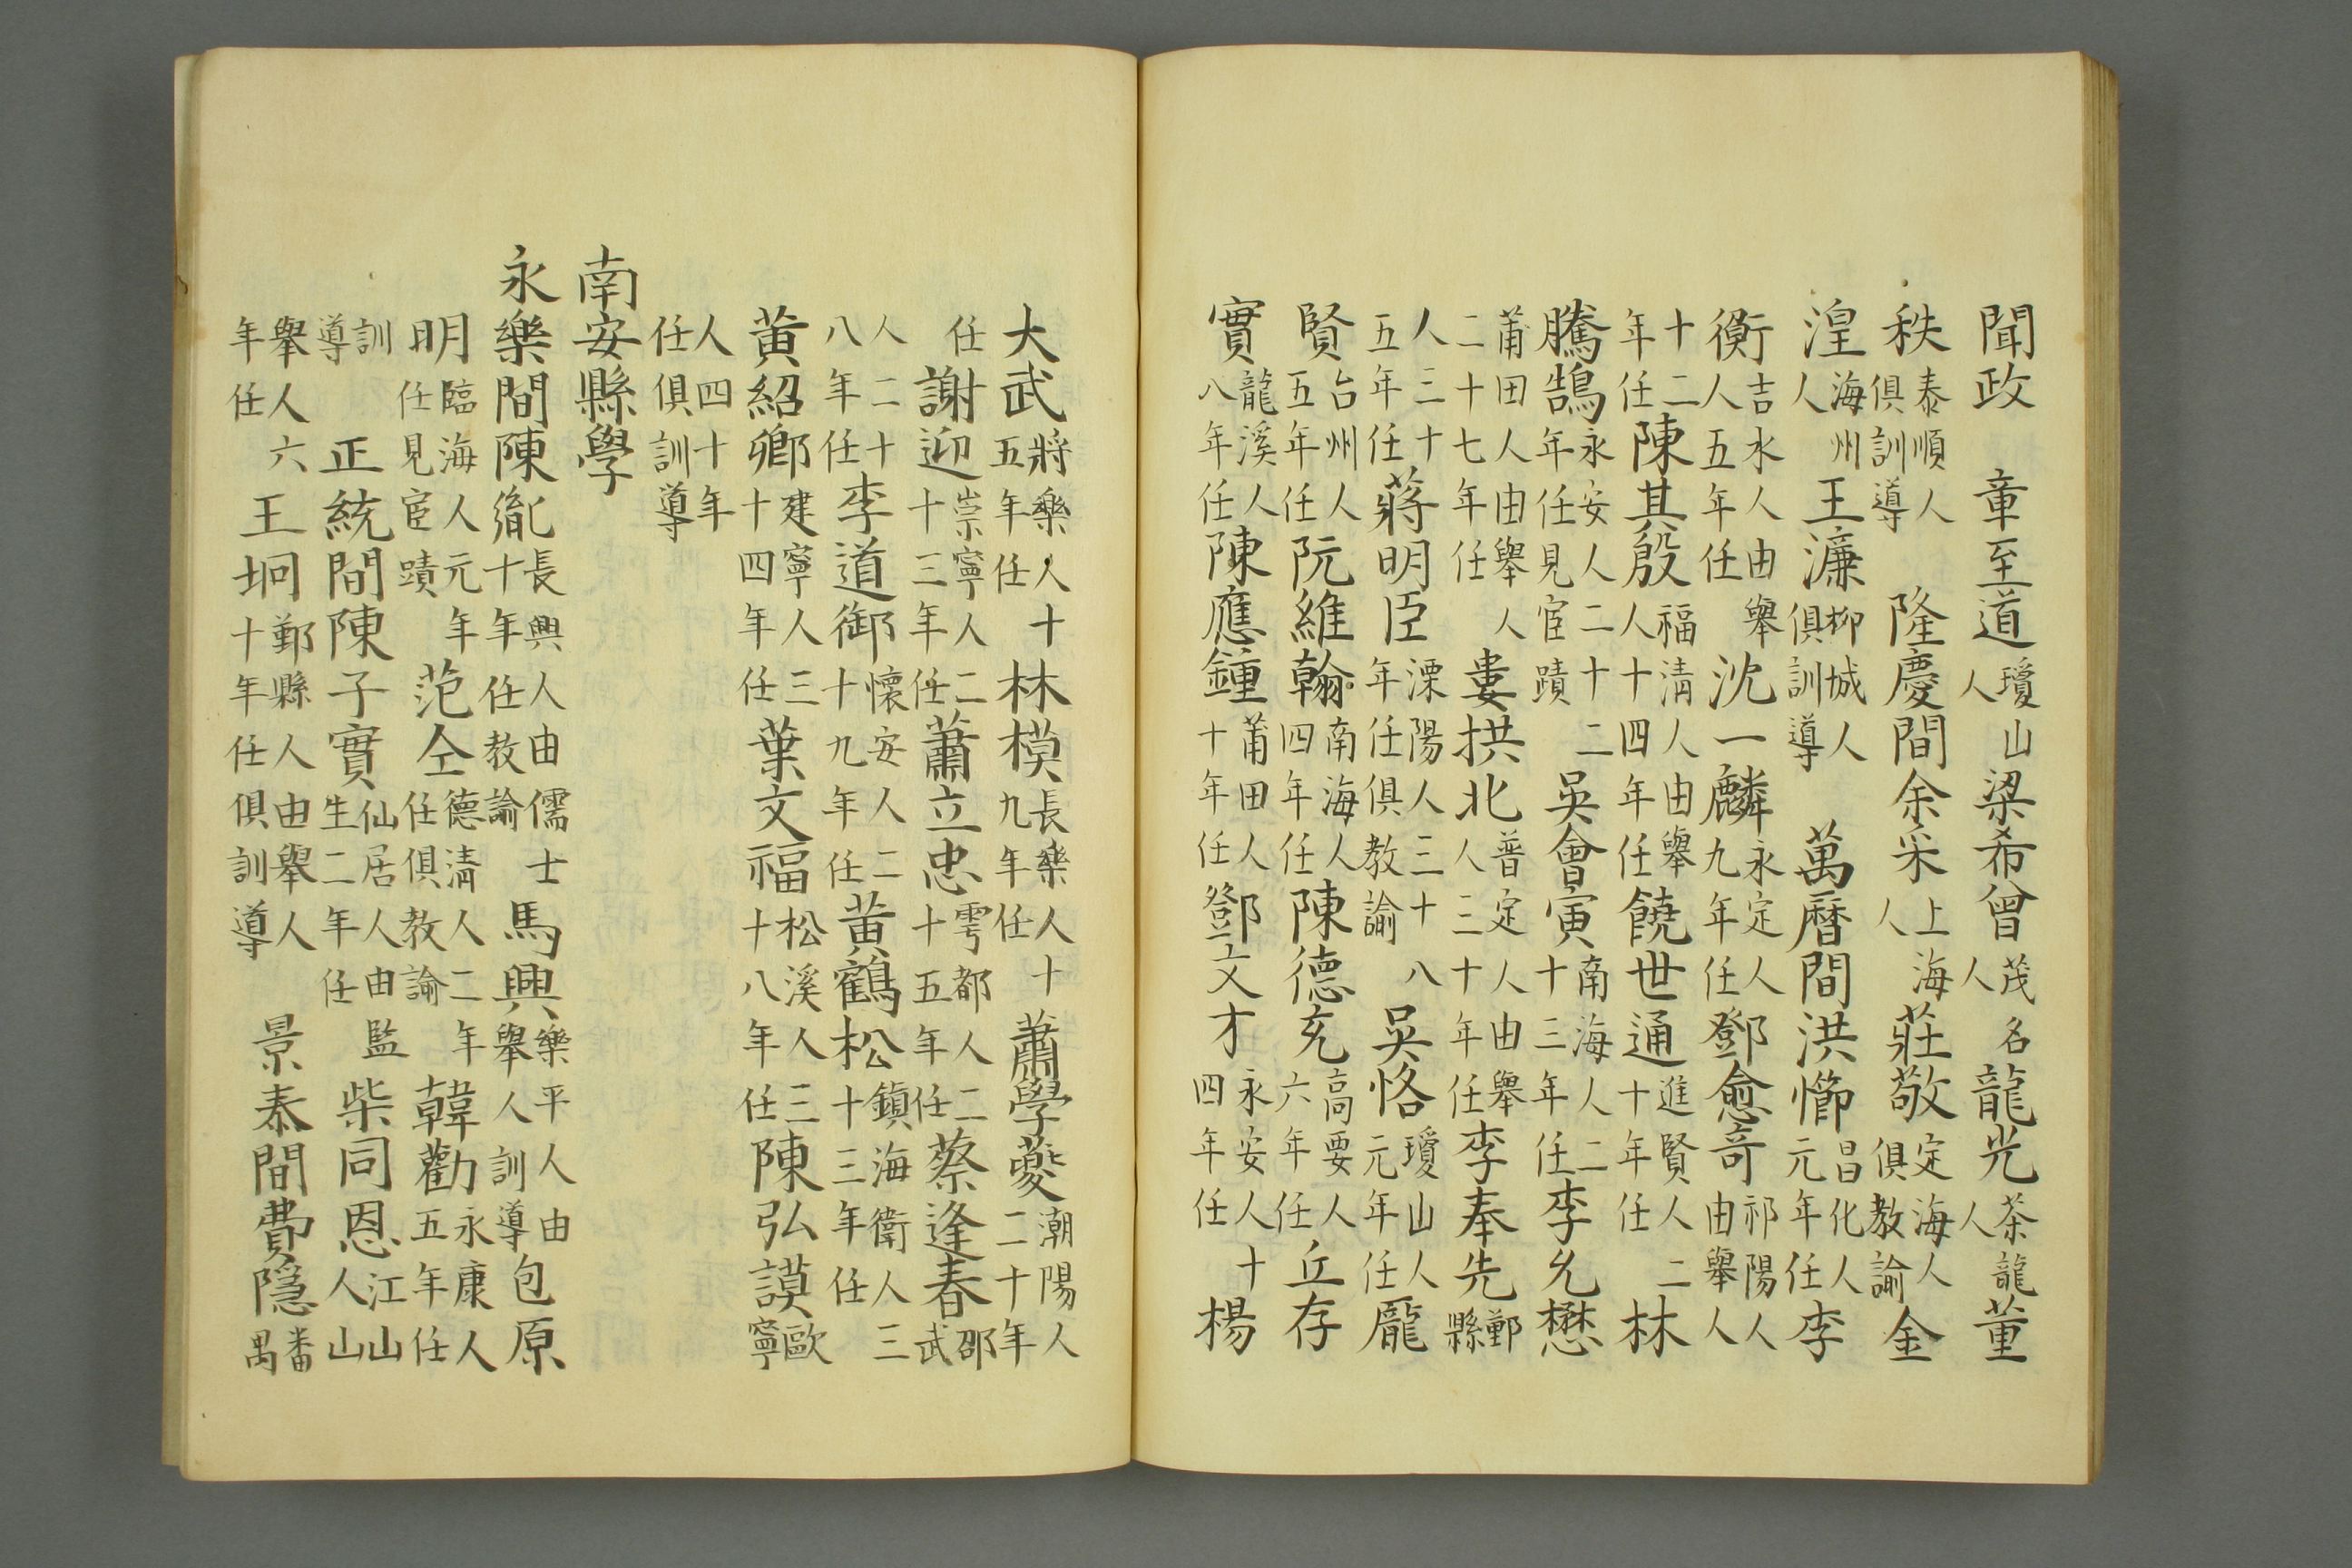 聞政　章至道瓊山人梁希曾茂名人龍光茶龍人董
秩泰順人俱訓導　隆慶間余采上海人莊敬定海人俱教諭金
湟海州人　王濂柳城人俱訓導　萬曆間洪㦢昌化人元年任李
衡吉水人由舉人五年任沈一麟永定人九年任鄧愈竒祁陽人由舉人
十二年任陳其殷福清人由舉人十四年任饒世通進賢人二十年任林
騰鵠永安人二十二年任見宦蹟吳會寅南海人二十三年任李允懋
莆田人由舉人二十七年任婁拱北普定人由舉人三十年任李奉先鄞縣
人三十五年任蔣明臣溧陽人三十八年任俱教諭　吳恪瓊山人元年任龎
賢台州人五年任阮維翰南海人四年任陳德充高要人六年任丘存
實龍溪人八年任陳應鍾莆田人十年任鄧文才永安人十四年任楊
大武將樂人十五年任林模長樂人十九年任蕭學夔潮陽人二十年
任謝迎崇寧人二十三年任蕭立忠雩都人二十五年任蔡逢春邵武
人二十八年任李道御懷安人二十九年任黃鶴松鎮海衛人三十三年任
黃紹卿建寧人三十四年任葉文福松溪人三十八年任陳弘謨歐寧
人四十年任俱訓導
南安縣學
永樂間陳胤長興人由儒士十年任教諭　馬興樂平人由舉人訓導包原
明臨海人元年任見宦蹟范仝德清人二年任俱教諭韓勸永康人五年任
訓導　正統間陳子實仙居人由監生二年任柴同恩江山人山
舉人六年任王坰鄞縣人由舉人十年任俱訓導　景泰間費隱番禺